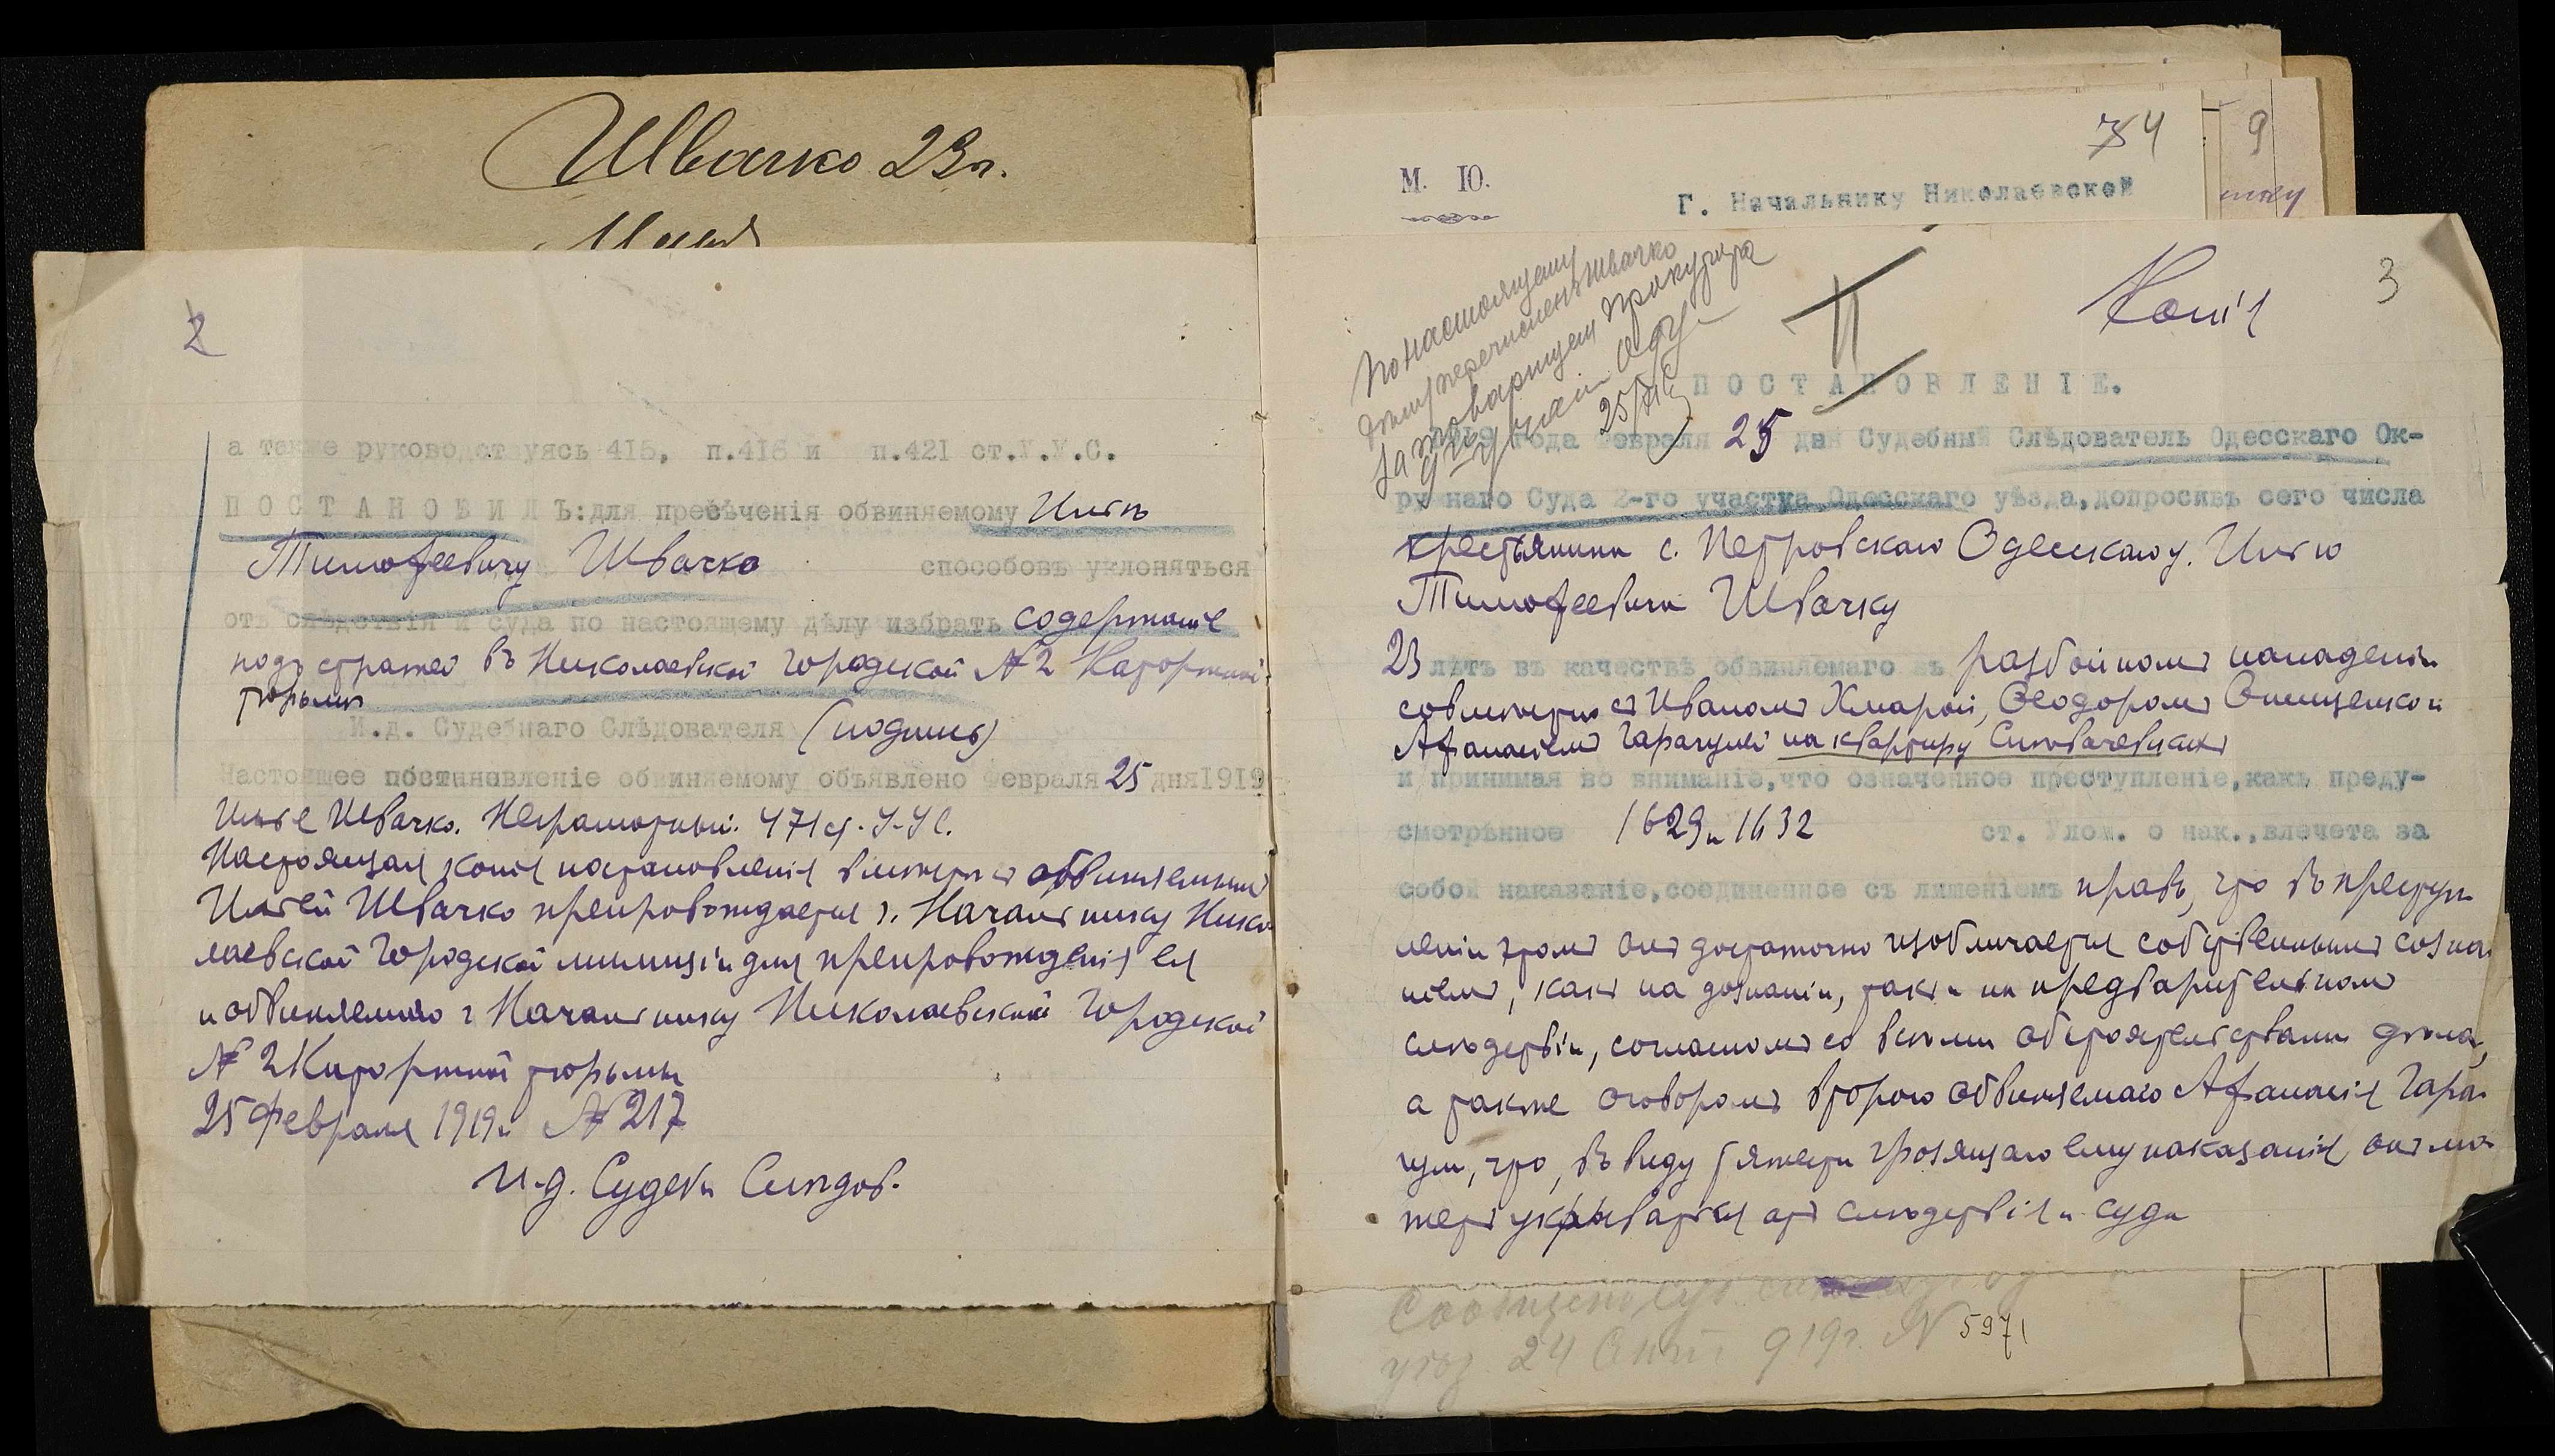 Швачко 23 л.
2
а также руководствуясь 415, п.416 и п.421 ст.У.У.С.
П О С Т А Н О В И Л Ъ: для пресѣченія обвиняемому Ильѣ
Тимофеевичу Швачко способовъ уклоняться
отъ слѣдствія и суда по настоящему дѣлу избрать содержаніе
подъ стражей въ Николаевской городской № 2 Каторжной
тюрьмѣ
И.д. Судебнаго Слѣдователя (подпись)
Настоящее постановленіе обвиняемому объявлено февраля 25 дня 1919
Илье Швачко. Неграмотный. 471 ст. У.У.С.
Настоящая копія постановленія вмѣстѣ съ обвиняемымъ
Ильей Швачко препровождается г. Начальнику Нико
лаевской городской милиціи для препровожденія ея
и обвиняемаго г. Начальнику Николаевской городской
№ 2 Каторжной тюрьмы
25 февраля 1919 г. № 217
И.д. Судебн Слѣдов.
74
9
М. Ю.
Г. Начальнику Николаевской
По настоящему
дѣлу перечисленъ Швачко
за товарищем прокурора
9го участ Одес
25/
Копія
3
П О С Т А Н О В Л Е Н І Е.
1919 года февраля 25 дня Судебный Слѣдователь Одесскаго Ок-
ружнаго Суда 2-го участка Одесскаго уѣзда, допросивъ сего числа
крестьянина с. Петровскаго Одесскаго у. Илью
Тимофеевича Швачку
23 лѣтъ въ качествѣ обвиняемаго въ разбойномъ нападеніи
совмѣстно съ Иваномъ Хмарой, Ѳеодоромъ Онищенко и
Афанасіемъ Гарагулей на квартиру
и принимая во вниманіе, что означенное преступленіе, какъ преду-
смотрѣнное 1629 и 1632 ст. Улож. о нак., влечета за
собой наказаніе, соединенное съ лишеніемъ правъ, что въ преступ
леніи этомъ онъ достаточно изобличается собственнымъ созна
ніемъ, какъ на дознаніи, такъ и на предварительномъ
слѣдствіи, согласномъ со всѣми обстоятельствами дѣла,
а также оговоромъ второго обвиняемаго Афанасія Гара
гули, что, въ виду тяжести грозящаго ему наказанія, онъ мо
жетъ укрываться отъ слѣдствія и суда
24 919 г. № 5971